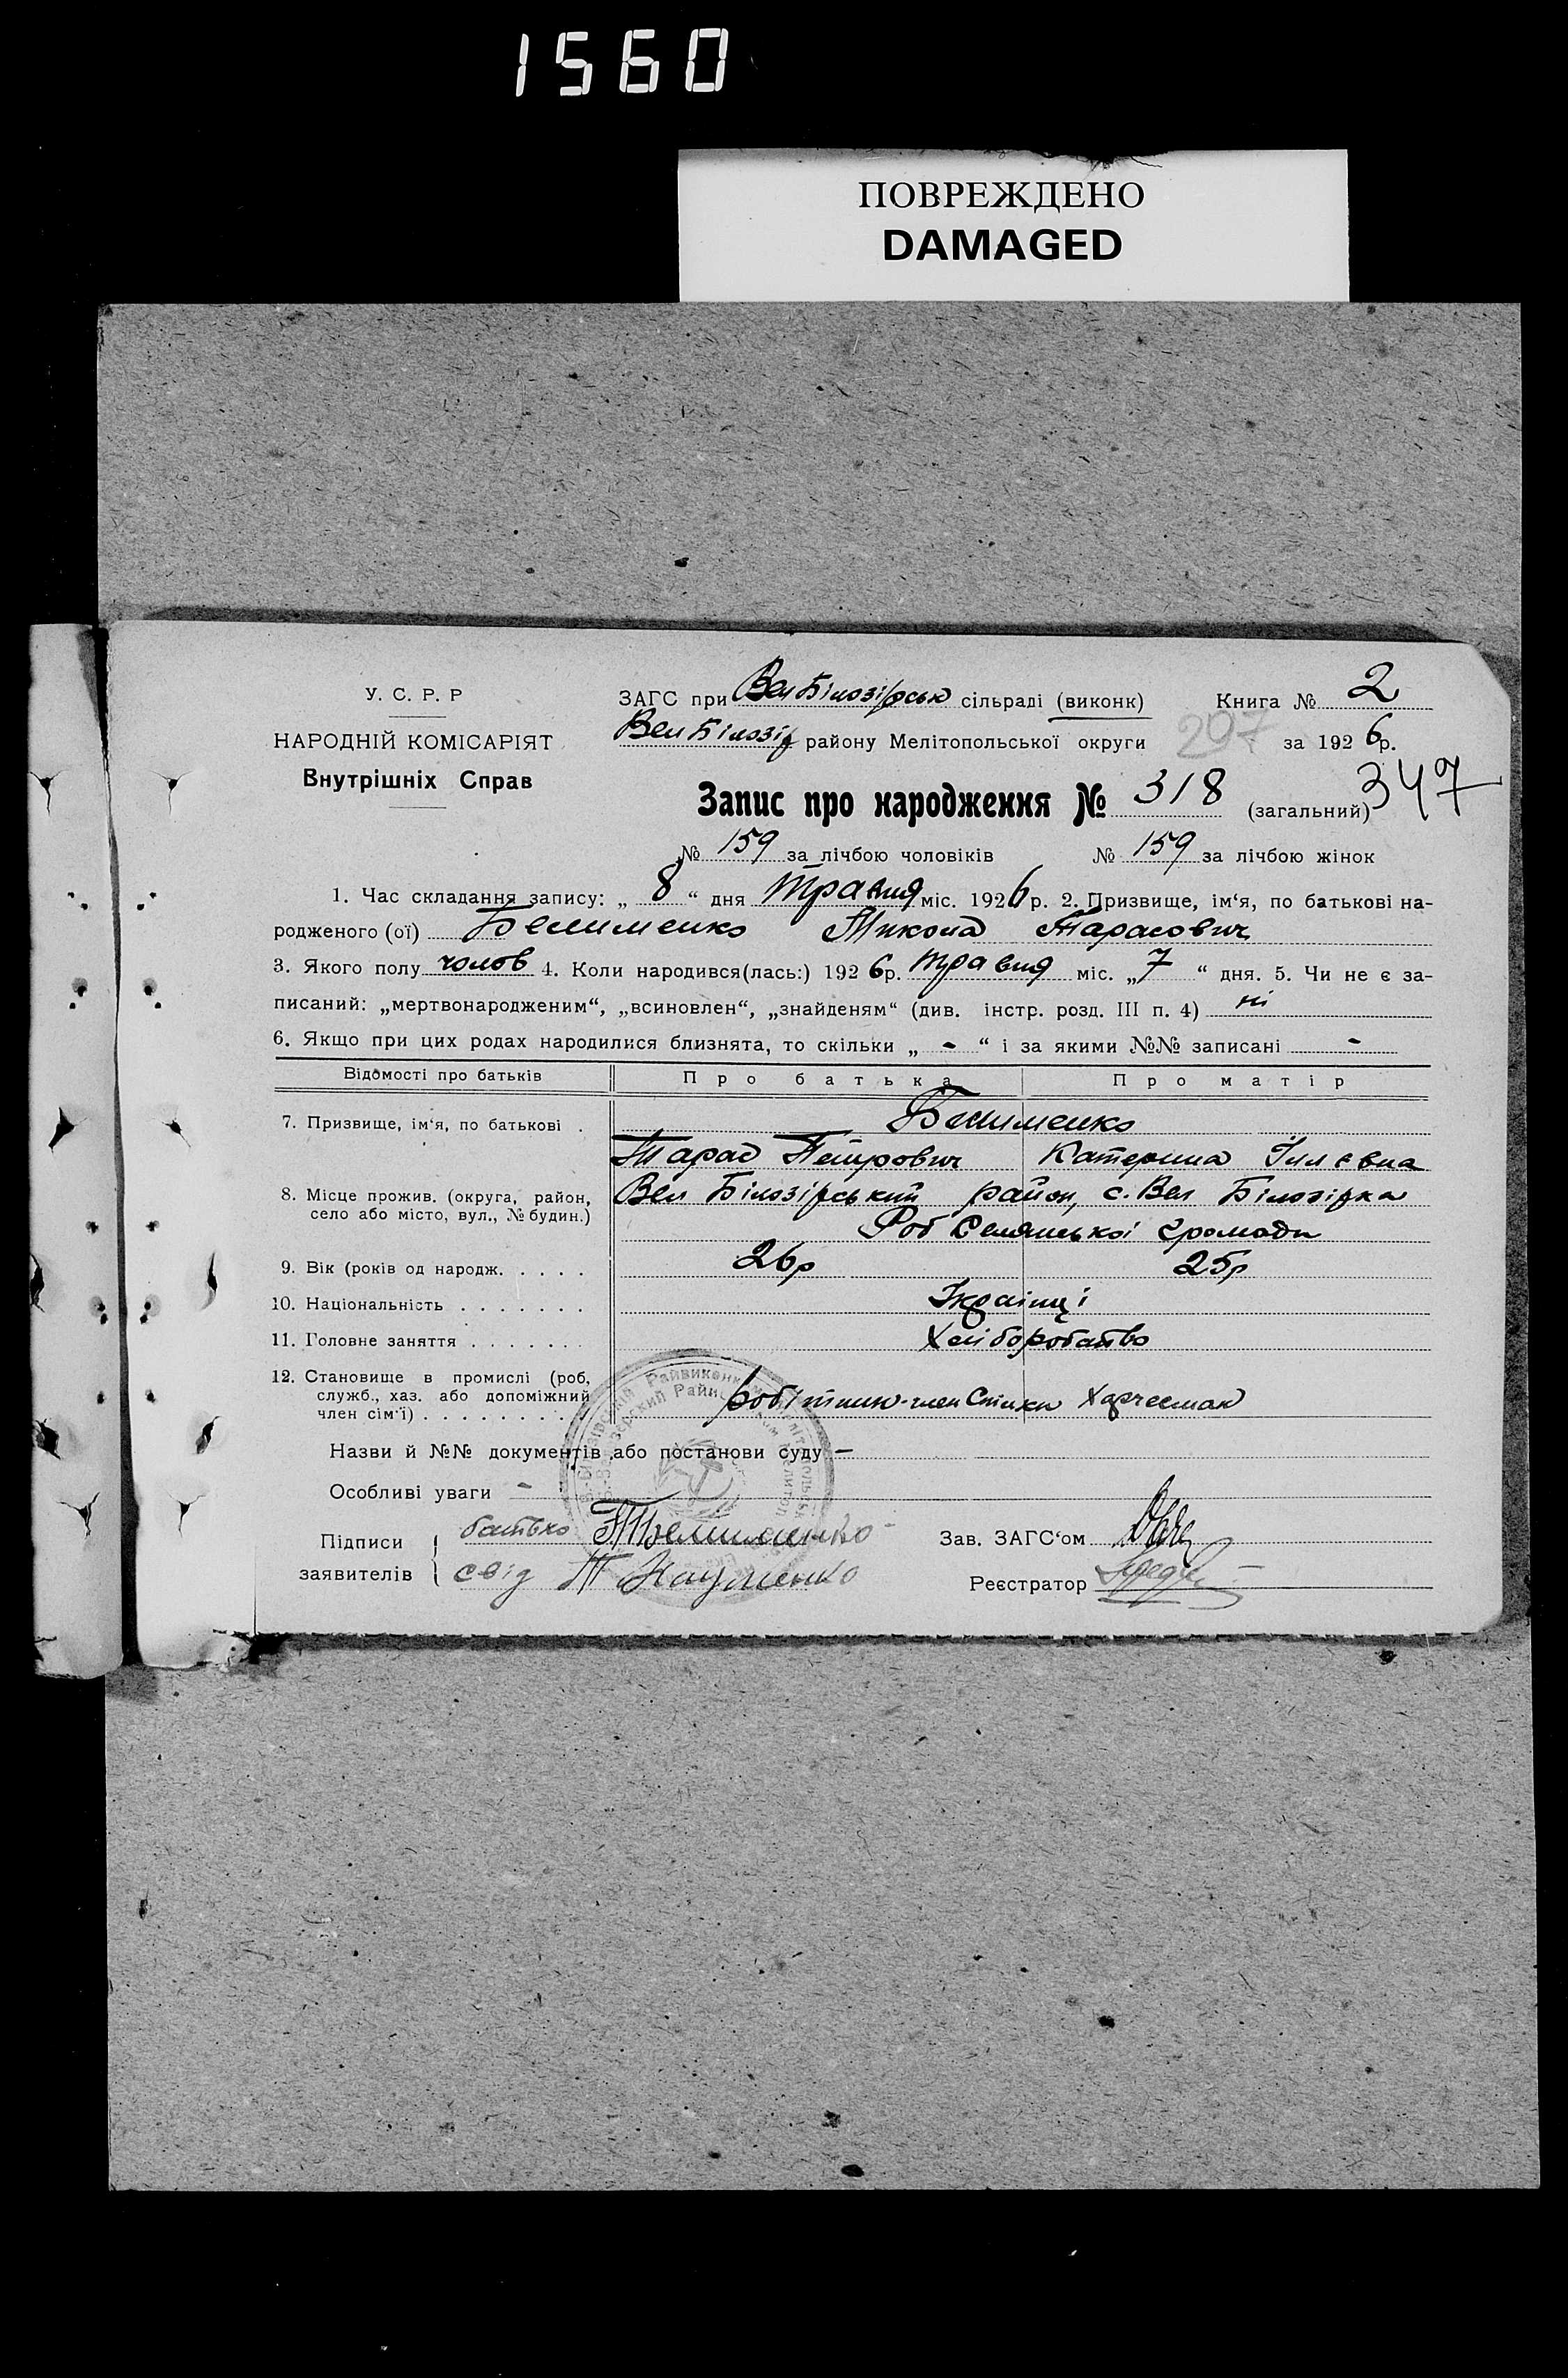 1560
ПОВРЕЖДЕНО
DAMAGED
У. С. Р. Р
НАРОДНІЙ КОМІСАРІЯТ
Внутрішніх Справ
ЗАГС при Вел Білозірськ сільраді (виконк) Книга № 2
Вел Білозір району Мелітопольської округи 297 за 1926р.
Запис про народження № 318 (загальний) 347
№ 159 за лічбою чоловіків № 159 за лічбою жінок
1. Час складання запису: „ 8 “ дня травня міс. 1926 р. 2. Призвище, ім‘я, по батькові на-
родженого (ої) Белименко Микола Тарасович
3. Якого полу чолов 4. Коли народився(лась:) 1926р. травня міс. „7 “ дня. 5. Чи не є за-
писаний: „мертвонародженим“, „всиновлен“, „знайденям“ (див. інстр. розд. III п. 4) ні
6. Якщо при цих родах народилися близнята, то скільки „ - “ і за якими №№ записані -
Відомості про батьків Про батька Про матір
7. Призвище, ім‘я, по батькові . Белименко
Тарас Петрович Катерина Іллєвна
8. Місце прожив. (округа, район, Вел Білозірський район, с. Вел Білозірка
село або місто, вул., № будин.)
Роб Селянської громади
9. Вік (років од народж. . . . . 26р 25р
10. Національність . . . . . . . Українці
11. Головне заняття . . . . . . . Хліборобство
12. Становище в промислі (роб,
служб., хаз. або допоміжний робітник-член Спилки
член сім‘ї) . . . . . . . . .
Назви й №№ документів або постанови суду —
Особливі уваги -
Підписи батько Т Белименко Зав. ЗАГС‘ом
заявителів свід Т Науменко Реєстратор